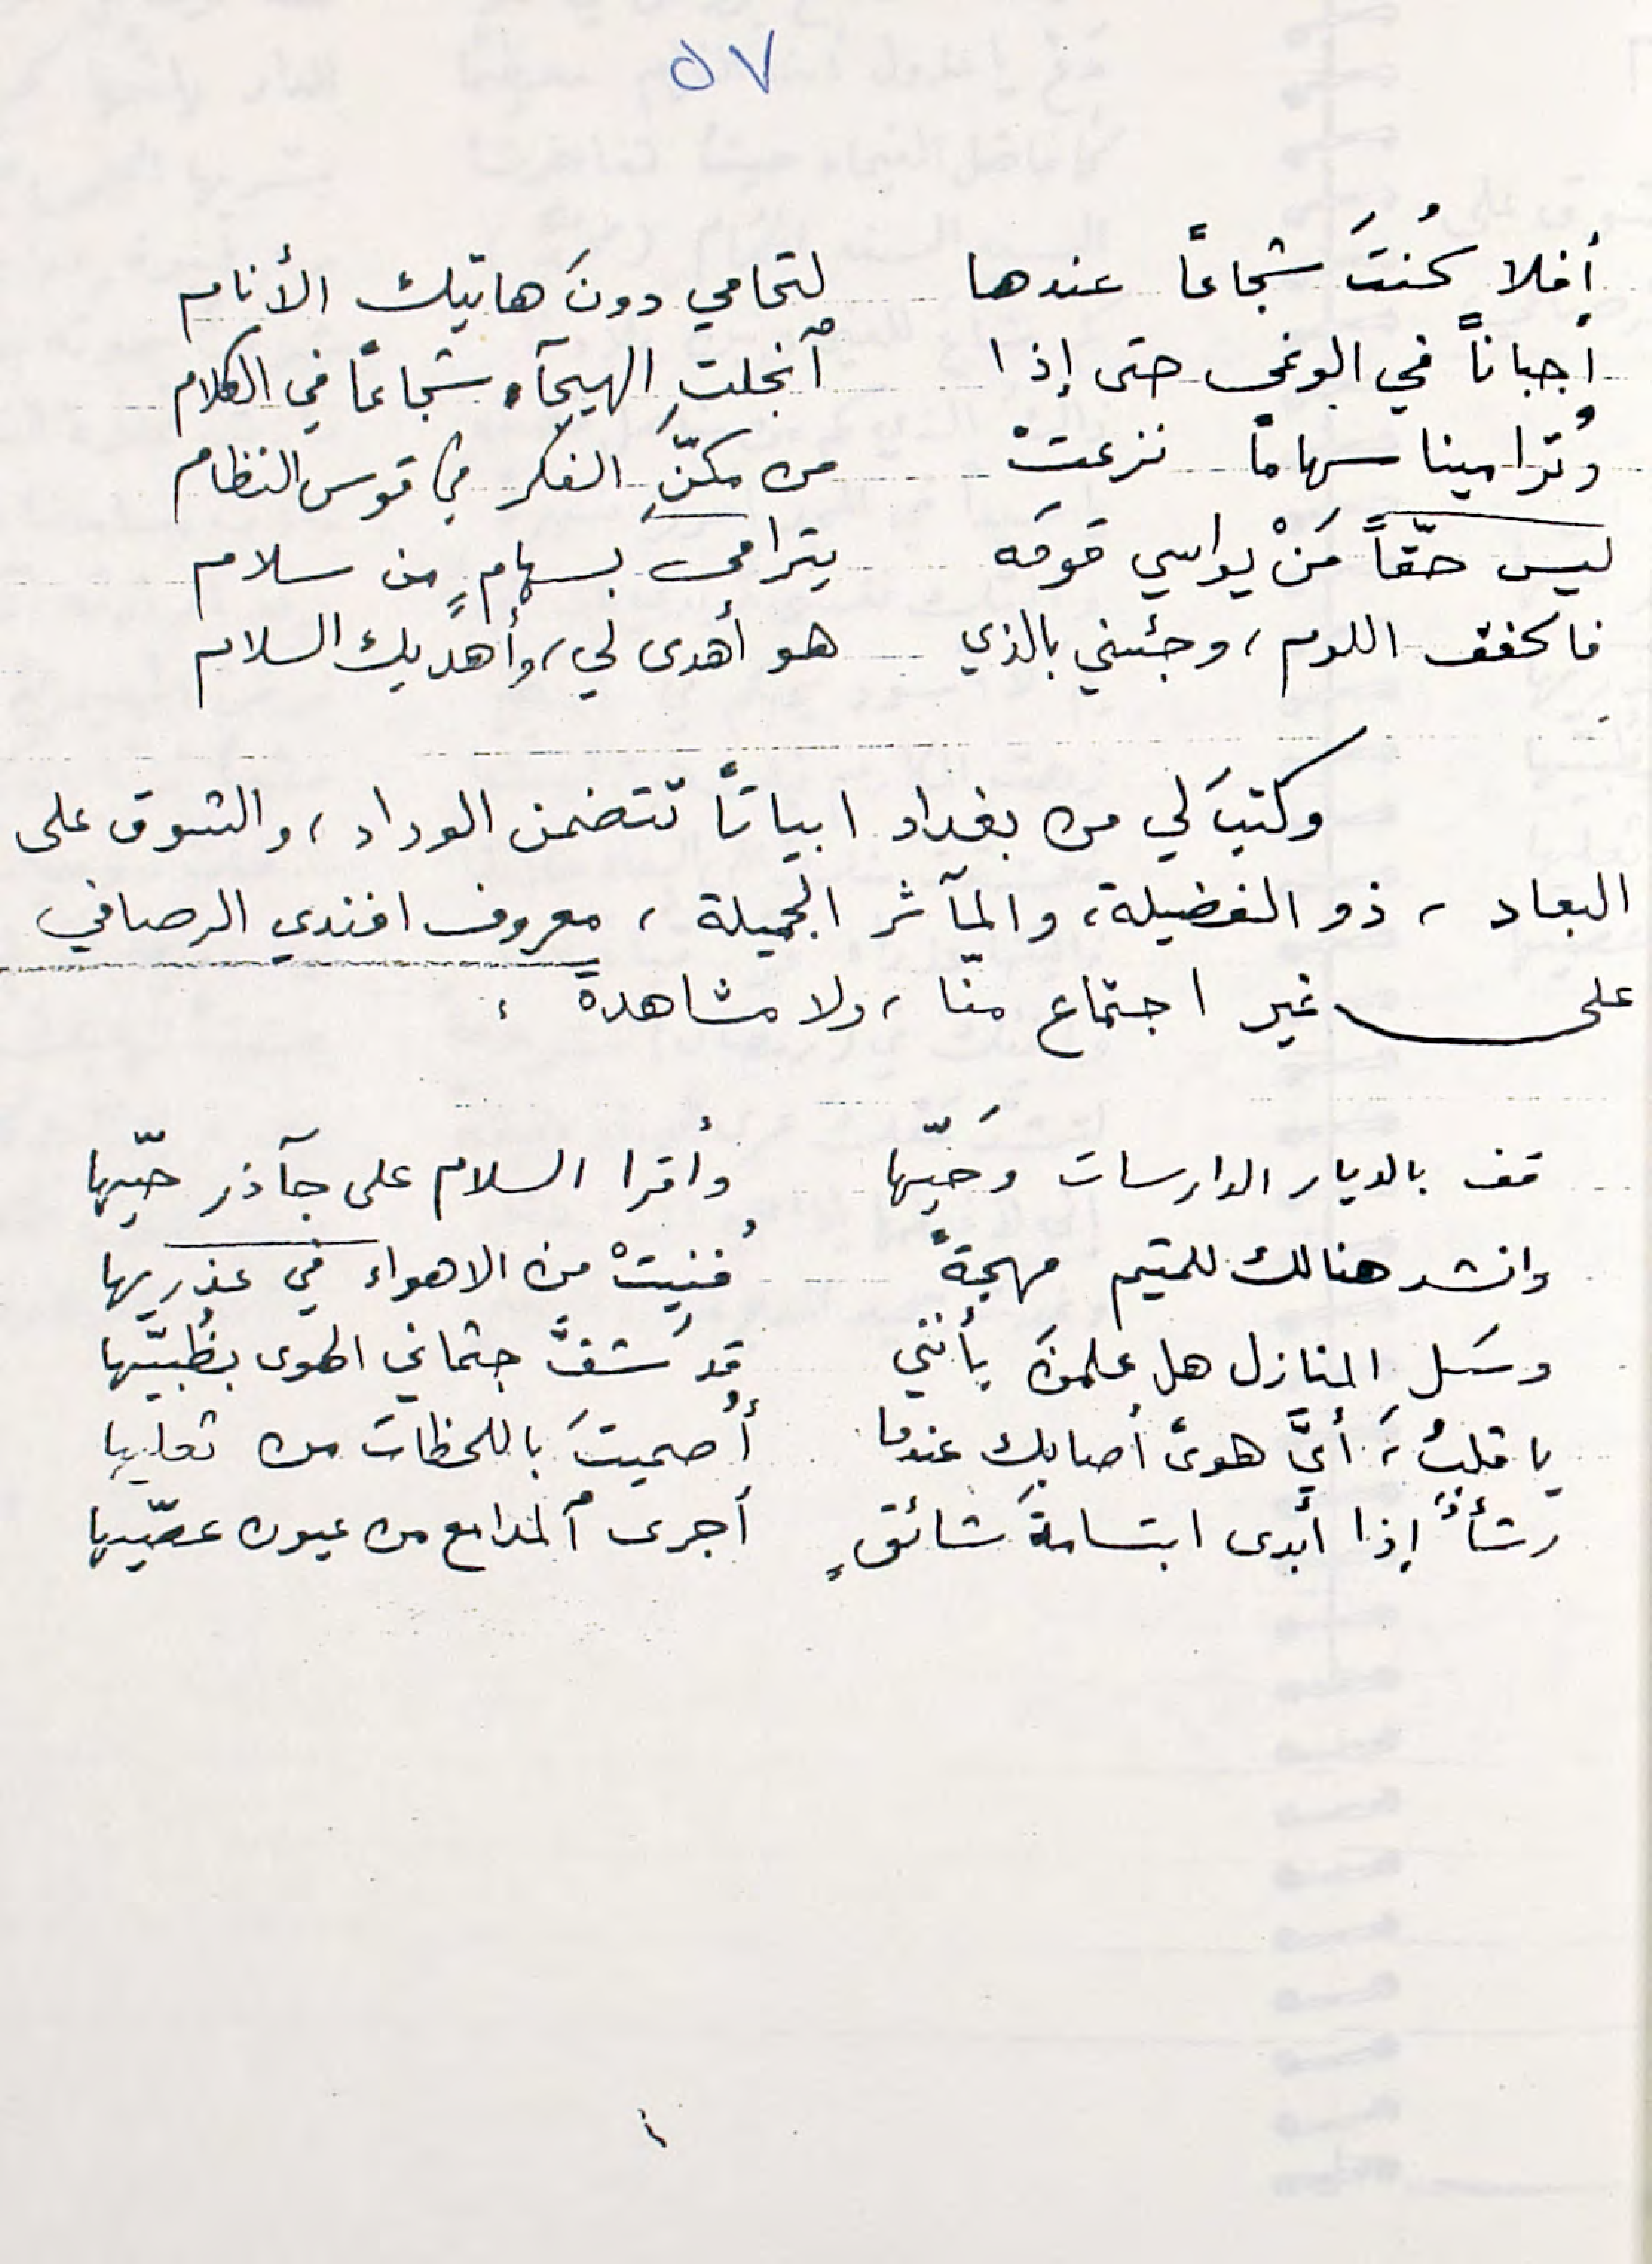 ٥٧
أفلا كُنتَ شجاعاً عندها لتحامي دونَ هاتيك الأنام
أجباناً في الوغى حتى إذا آنجلتِ الهيجآء شجاعاً في الكلام
وتُرامينا سهاماً نزعتْ من مكنِّ الفكر في قوس النظام
ليس حقّاً مَنْ يواسي قومَه يترامى بسهامٍ من سلام
فاخفف اللوم، وجئني بالذي هو أهدى لي، وأهديك السلام
وكتبَ لي من بغداد ابياتاً تتضمن الوداد، والتشوق على
البعاد، ذو الفضيلة، والمآثر الجميلة، معروف افندي الرصافي
على غير اجتماع منّا، ولا مشاهدة:
قف بالديار الدارسات وَحَيّها وأقرا السلام على جآذر حيّها
وانشد هنالك للمتيم مهجةً فنيتْ من الاهواء في عذريها
وسَل المنازل هل علمنَ بأنني قد شفَّ جثماني الهوى بظُبيّها
يا قلبُ، أيَّ هوىً أصابك عندما أُصميتَ باللحظات من ثعليها
رشأٌ إذا أبدى ابتسامةَ شائقٍ أجرى آلمدامع من عيون عصيّها